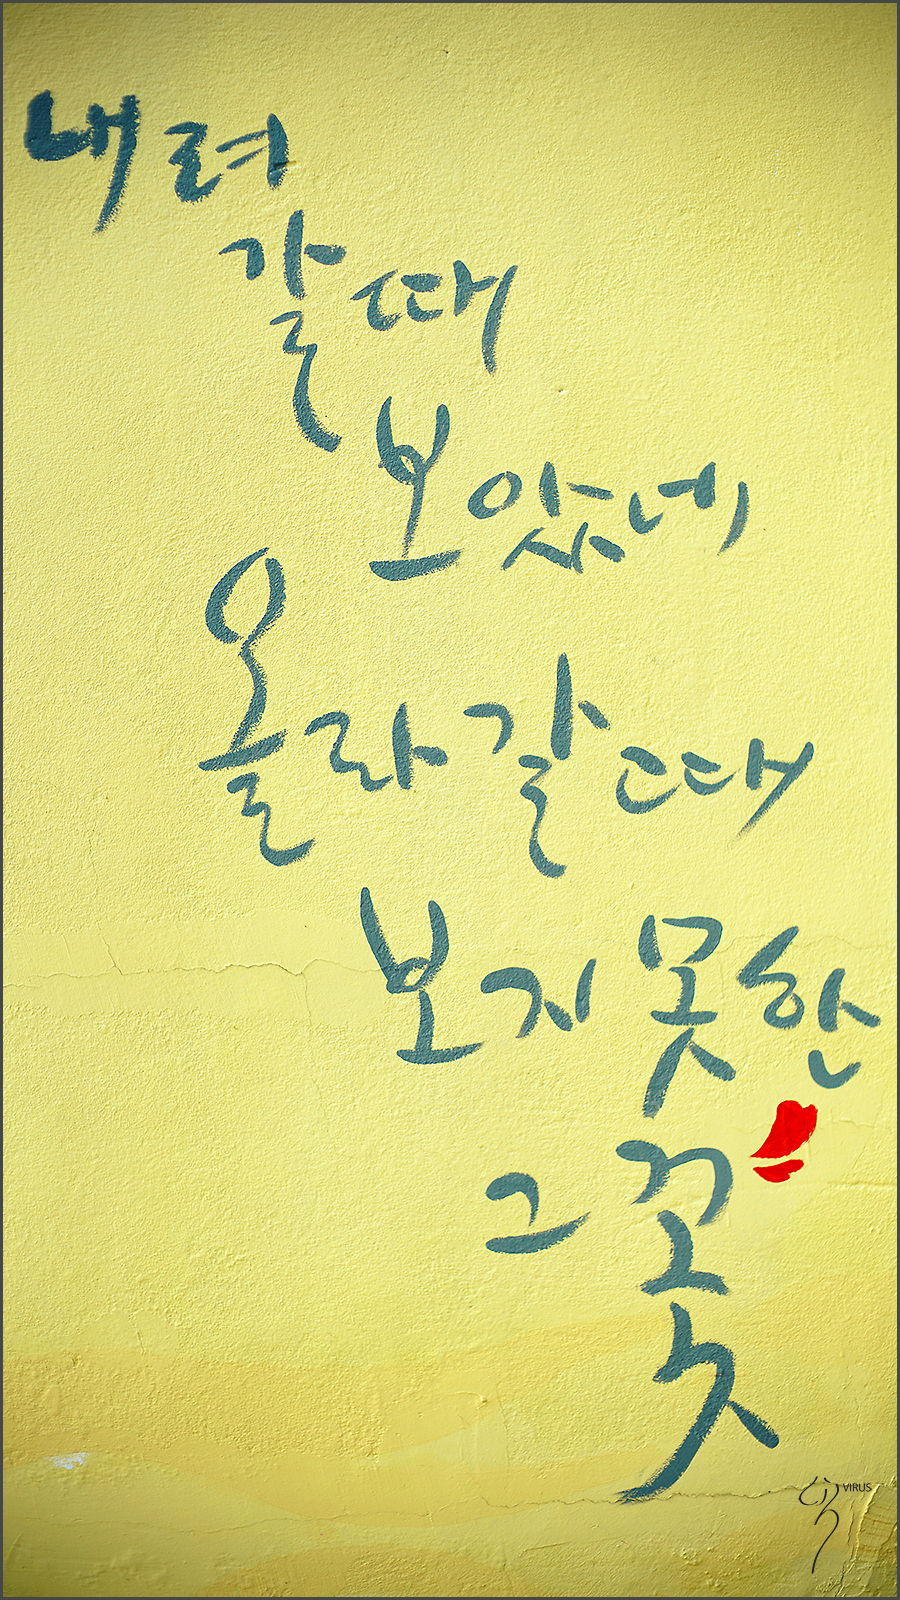 내려
갈때
보았네
올라갈때
보지못한
그꽃
VIRUS